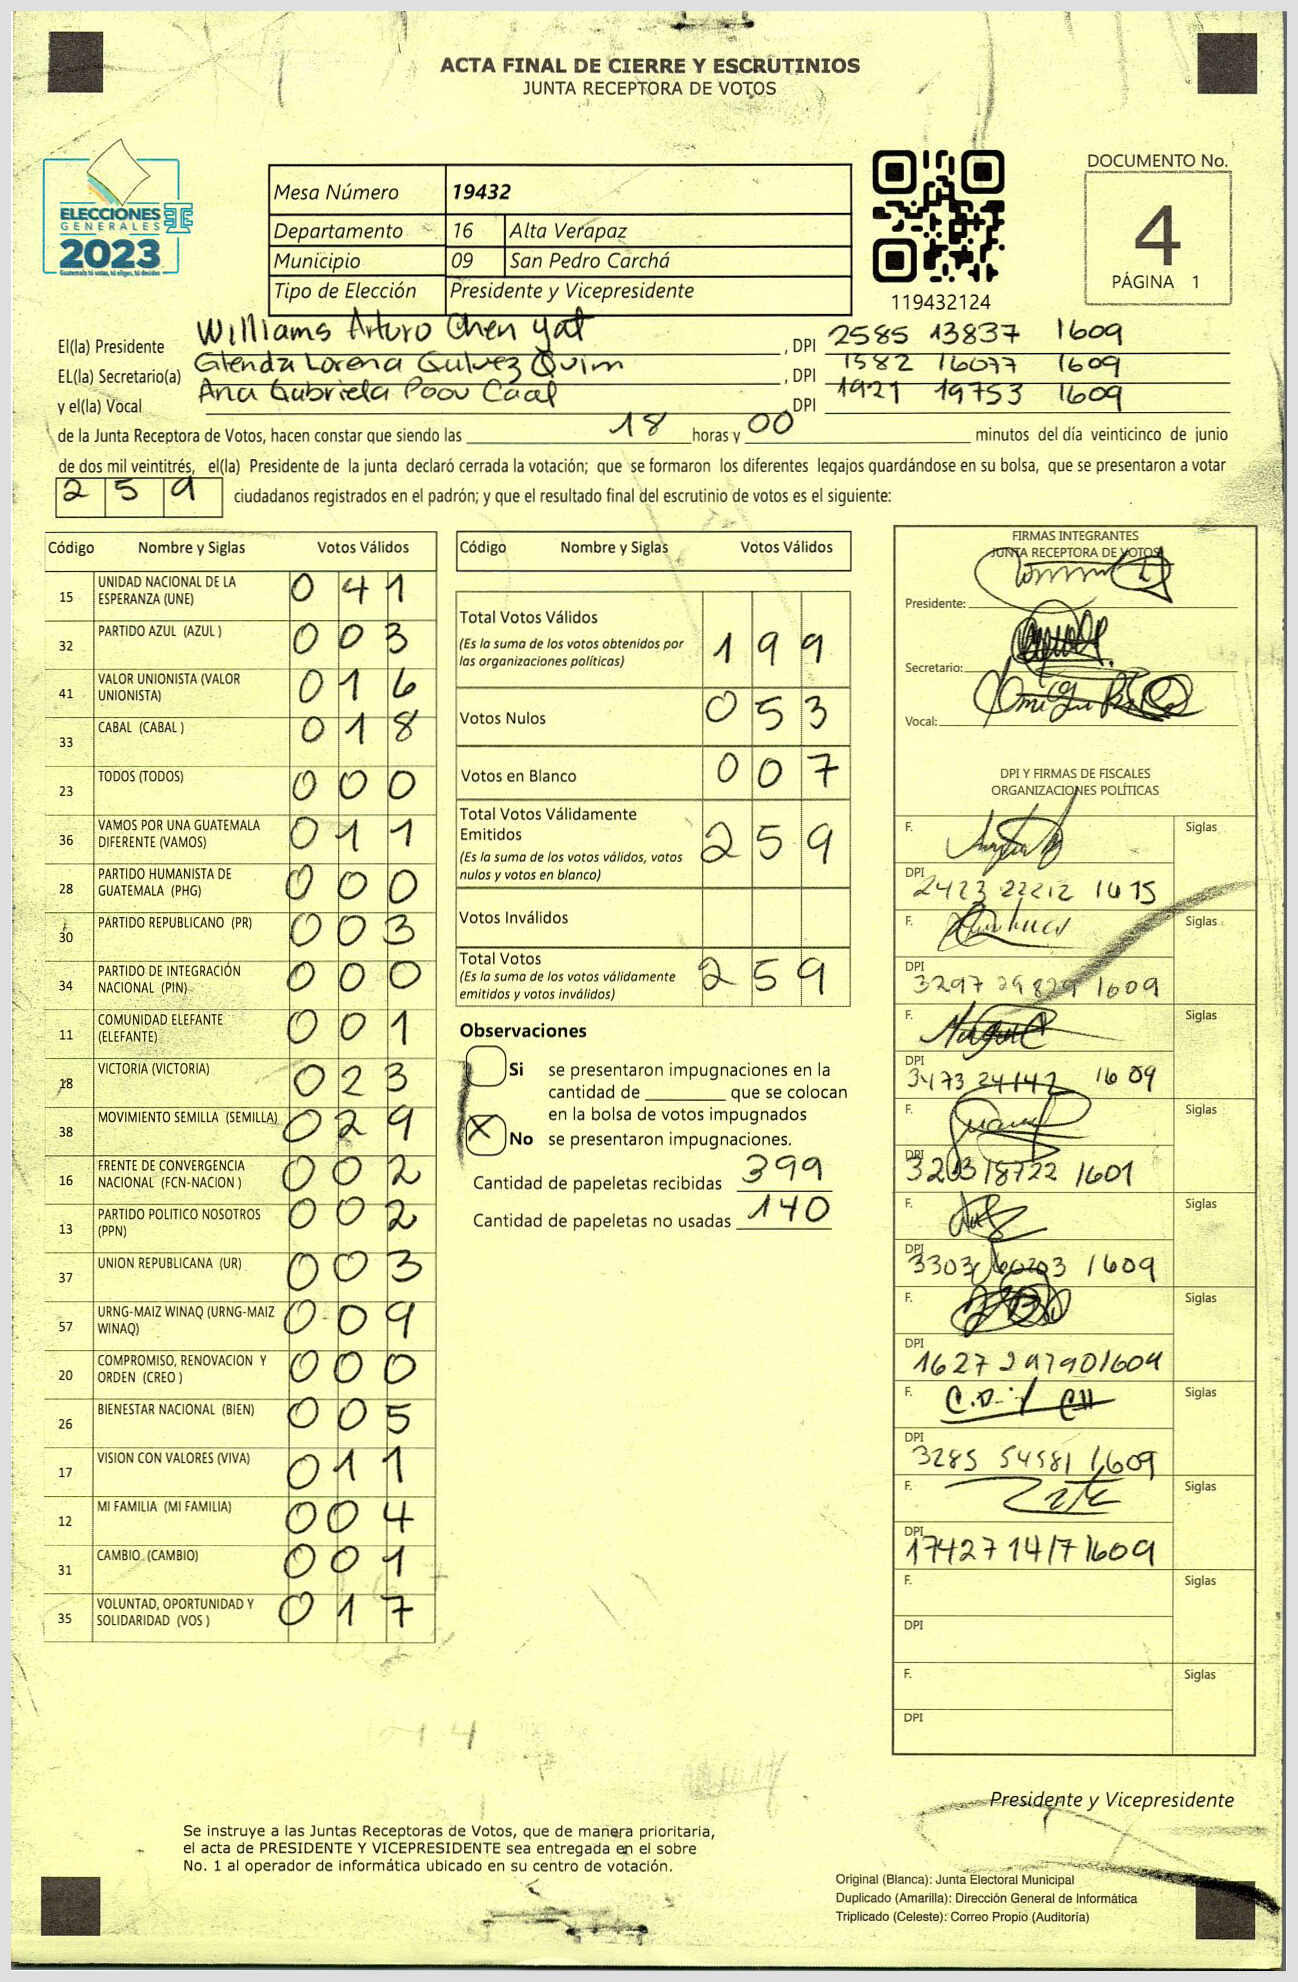 ACTA FINAL DE CIERRE Y ESCRUTINIOS
JUNTA RECEPTORA DE VOTOS
ELECCIONES
GENERALES
2023
Guatemala tú votas, tú eliges, tú decides
Mesa Número 19432
Departamento 16 Alta Verapaz
Municipio 09 San Pedro Carchá
Tipo de Elección Presidente y Vicepresidente
119432124
DOCUMENTO No.
4
PÁGINA 1
El(la) Presidente Williams Arturo Chen Yat, DPI 2585 13837 1609
EL(la) Secretario(a) Glenda Lorena Gulvez Quim, DPI 1582 16077 1609
y el(la) Vocal Ana Gabriela Poou Caal DPI 1921 19753 1609
de la Junta Receptora de Votos, hacen constar que siendo las 18 horas y 00 minutos del día veinticinco de junio
de dos mil veintitrés, el(la) Presidente de la junta declaró cerrada la votación; que se formaron los diferentes legajos guardándose en su bolsa, que se presentaron a votar
259 ciudadanos registrados en el padrón; y que el resultado final del escrutinio de votos es el siguiente:
Código Nombre y Siglas Votos Válidos
15 UNIDAD NACIONAL DE LA ESPERANZA (UNE) 041
32 PARTIDO AZUL (AZUL ) 003
41 VALOR UNIONISTA (VALOR UNIONISTA) 016
33 CABAL (CABAL ) 018
23 TODOS (TODOS) 000
36 VAMOS POR UNA GUATEMALA DIFERENTE (VAMOS) 011
28 PARTIDO HUMANISTA DE GUATEMALA (PHG) 000
30 PARTIDO REPUBLICANO (PR) 003
34 PARTIDO DE INTEGRACIÓN NACIONAL (PIN) 000
11 COMUNIDAD ELEFANTE (ELEFANTE) 001
18 VICTORIA (VICTORIA) 023
38 MOVIMIENTO SEMILLA (SEMILLA) 029
16 FRENTE DE CONVERGENCIA NACIONAL (FCN-NACION ) 002
13 PARTIDO POLITICO NOSOTROS (PPN) 002
37 UNION REPUBLICANA (UR) 003
57 URNG-MAIZ WINAQ (URNG-MAIZ WINAQ) 009
20 COMPROMISO, RENOVACION Y ORDEN (CREO ) 000
26 BIENESTAR NACIONAL (BIEN) 005
17 VISION CON VALORES (VIVA) 011
12 MI FAMILIA (MI FAMILIA) 004
31 CAMBIO (CAMBIO) 001
35 VOLUNTAD, OPORTUNIDAD Y SOLIDARIDAD (VOS ) 017
Código Nombre y Siglas Votos Válidos
Total Votos Válidos 199
(Es la suma de los votos obtenidos por
las organizaciones políticas)
Votos Nulos 053
Votos en Blanco 007
Total Votos Válidamente
Emitidos 259
(Es la suma de los votos válidos, votos
nulos y votos en blanco)
Votos Inválidos
Total Votos 259
(Es la suma de los votos válidamente
emitidos y votos inválidos)
Observaciones
Si se presentaron impugnaciones en la
cantidad de ________ que se colocan
en la bolsa de votos impugnados
X No se presentaron impugnaciones.
Cantidad de papeletas recibidas 399
Cantidad de papeletas no usadas 140
FIRMAS INTEGRANTES
JUNTA RECEPTORA DE VOTOS
Presidente:
Secretario:
Vocal:
DPI Y FIRMAS DE FISCALES
ORGANIZACIONES POLÍTICAS
F. Siglas
DPI 2423 22212 1615
F. Siglas
DPI 3297 29829 1609
F. Siglas
DPI 3473 24142 1609
F. Siglas
DPI 3203 18722 1601
F. Siglas
DPI 3303 60203 1609
F. Siglas
DPI 1627 29790 1609
F. Siglas
DPI 3285 54581 1609
F. Siglas
DPI 17427 1417 1609
F. Siglas
DPI
F. Siglas
DPI
Presidente y Vicepresidente
Se instruye a las Juntas Receptoras de Votos, que de manera prioritaria,
el acta de PRESIDENTE Y VICEPRESIDENTE sea entregada en el sobre
No. 1 al operador de informática ubicado en su centro de votación.
Original (Blanca): Junta Electoral Municipal
Duplicado (Amarilla): Dirección General de Informática
Triplicado (Celeste): Correo Propio (Auditoría)